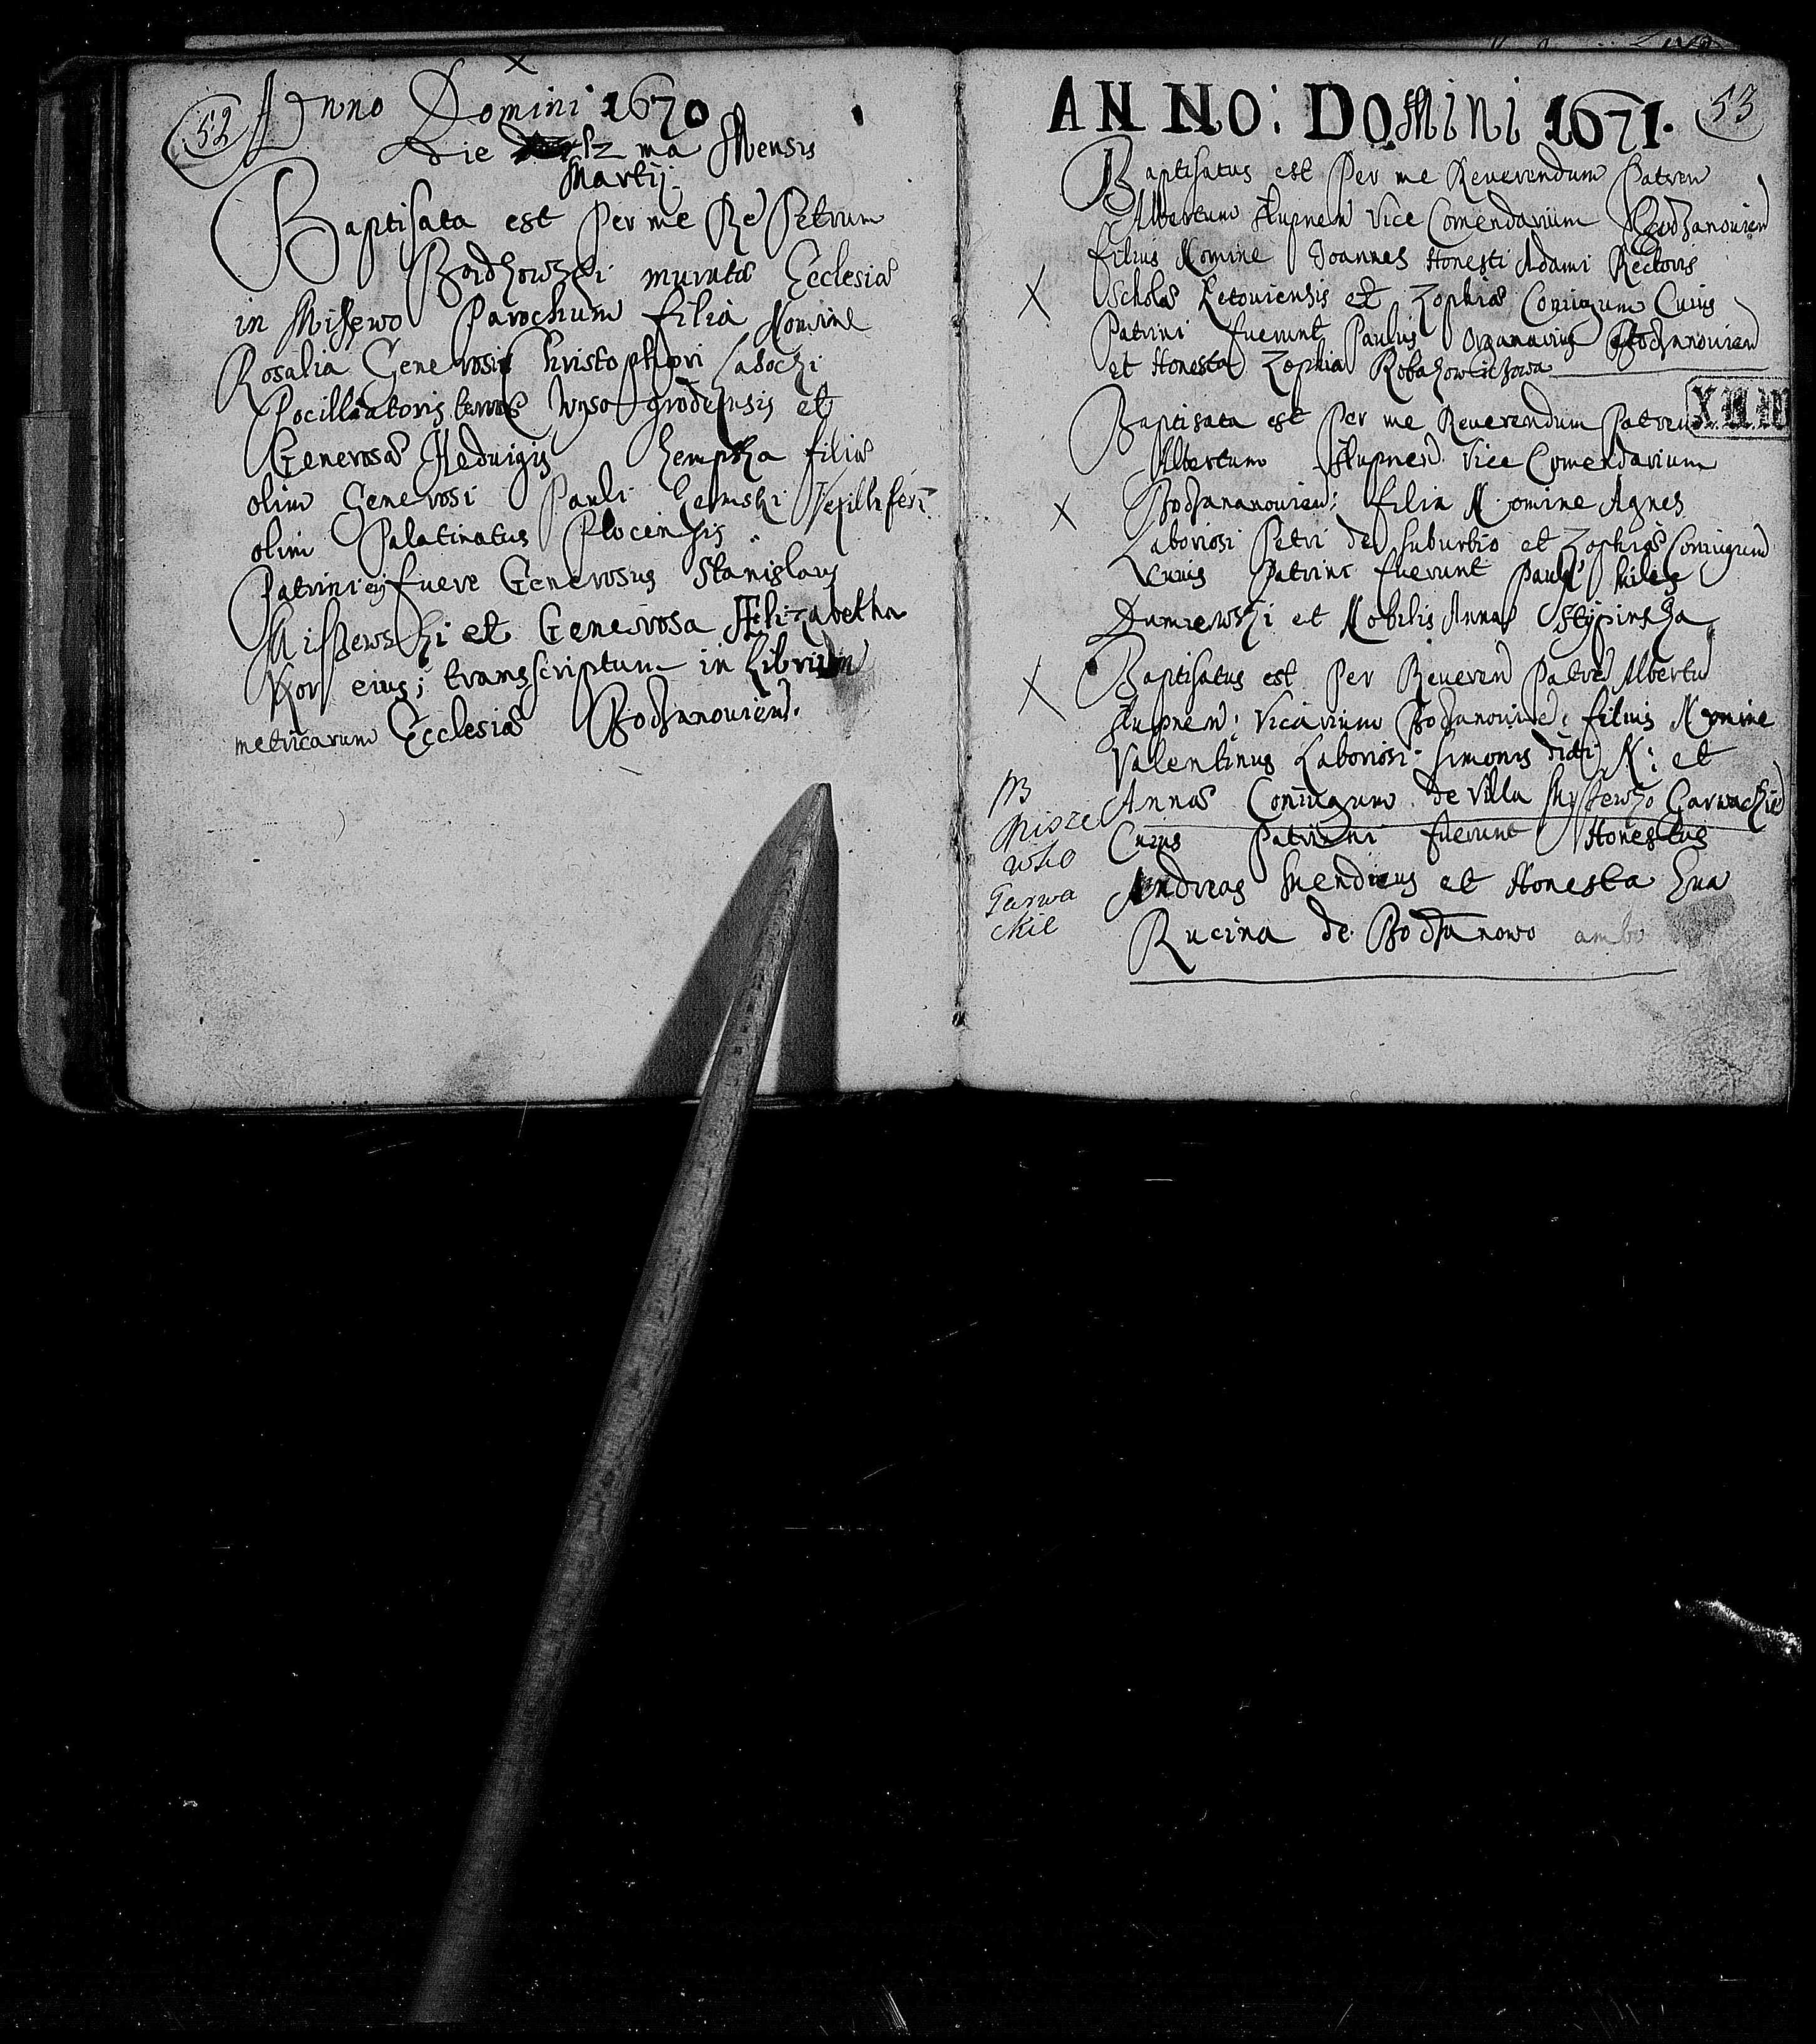 52
Anno Domini 1670
Die 12 ma Mensis
Martij
Baptisata est per me Re Petrum
muratæ Ecclesiæ
in Missewo Parochum filia Nomine
Rosalia Generosi Christophori Ladochi
Pocillatoris terræ Wysogrodensis et
Generosæ Heduigis Zempska filiæ
olim Generosi Pauli Zemski Vexilliferi
olim Palatinatus Plocensis
Patrini eig fuere Generosus Stanislaus
Missewski et Generosa Helizabetha
Vxor eius; transscriptum in Librum
metricarum Ecclesiæ Bodzanouien.
53
ANNO: DOMINI 1671.
Baptisatus est per me Reuerendum Patrem
Albertum Slupnen Vice Comendarium Bodzanouien
filius Nomine Joannes Honesti Adami Rectoris
Scholæ Retouiensis et Zophiæ Coniugum Cuius
Patrini fuerunt Paulus Organarius Bodzanouien
et Honesta Zophia
Baptisata est per me Reuerendum Patrem
Albertum Slupnen. Vice Comendarium
Bodzananouien: filia Nomine Agnes
Laboriosi Petri de Suburbio et Zophiæ Coniugum
Cuius Patrini fuerunt
et Nobilis Anna Stypinska
Baptisatus est Per Reueren Patrē Albertū
Slupnen: Vicarium Bodzanouien: filius Nomine
Valentinus Laboriosi Simonis dicti N: et
Annæ Coniugum de Villa Mysewko Garwackie
Cuius Patrini fuerunt Honestus
Andreas et Honesta Eua
Rucina de Bodzanowo ambo
Misze
wko
Garwa
ckie